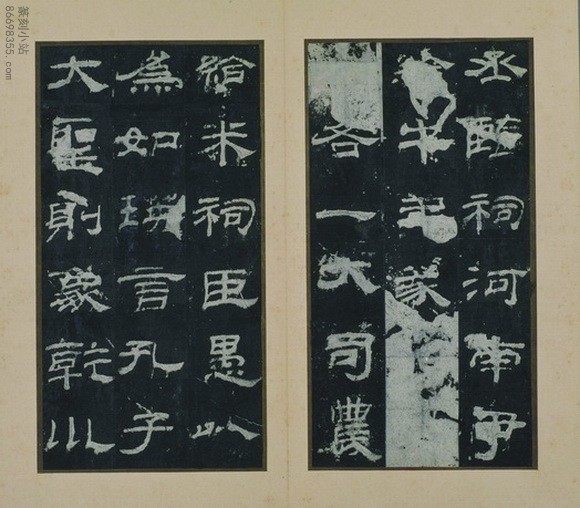 丞臨祠河南尹
給牛羊豕
各一大司農
給米祠臣愚以
為如瑛言孔子
大聖則象乾川
篆刻小站
86698355.com